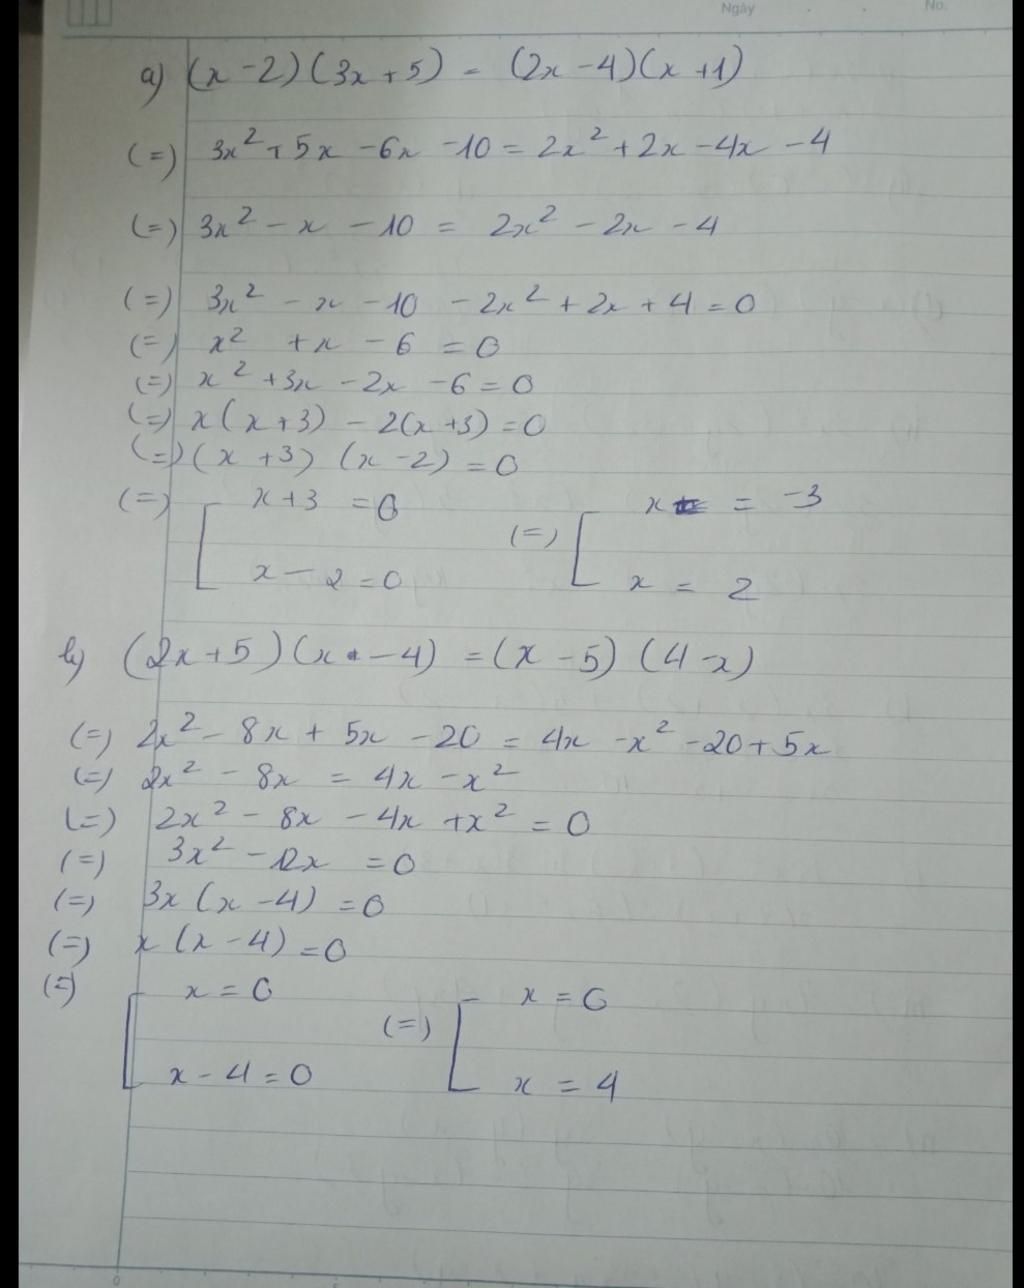 Ngày . . No.
a) (x-2)(3x+5) = (2x-4)(x+1)
(=) 3x²+5x-6x-10 = 2x²+2x-4x-4
(=) 3x²-x-10 = 2x²-2x-4
(=) 3x²-x-10-2x²+2x+4=0
(=) x²+x-6=0
(=) x²+3x-2x-6=0
(=) x(x+3)-2(x+3)=0
(=) (x+3)(x-2)=0
(=) [ x+3=0 (=) [ x = -3
x-2=0 x = 2
b) (2x+5)(x-4) = (x-5)(4-x)
(=) 2x²-8x+5x-20 = 4x-x²-20+5x
(=) 2x²-8x = 4x-x²
(=) 2x²-8x-4x+x²=0
(=) 3x²-12x=0
(=) 3x(x-4)=0
(=) x(x-4)=0
(=) [ x=0 (=) [ x=0
x-4=0 x=4
0